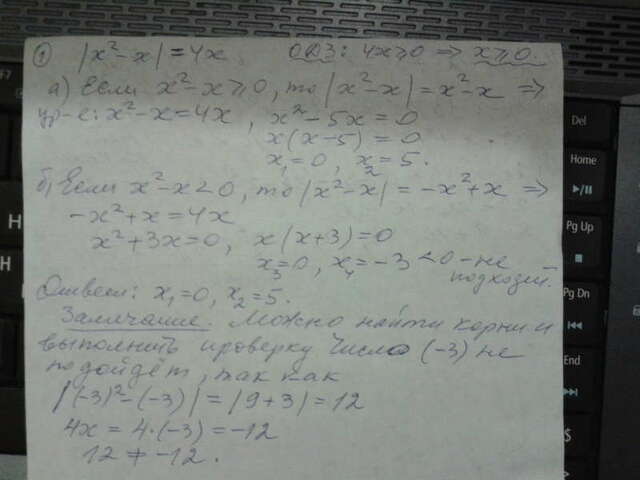 ① |x²-x| = 4x ОДЗ: 4x≥0 ⇒ x≥0
а) Если x²-x≥0, то |x²-x| = x²-x ⇒
ур-е: x²-x=4x, x²-5x=0
x(x-5)=0
x₁=0, x₂=5.
б) Если x²-x<0, то |x²-x| = -x²+x ⇒
-x²+x=4x
x²+3x=0, x(x+3)=0
x₃=0, x₄=-3<0-не
подходит.
Ответ: x₁=0, x₂=5.
Замечание. Можно найти корни и
выполнить проверку Число (-3) не
подойдёт, так как
|(-3)²-(-3)| = |9+3| = 12
4x = 4·(-3) = -12
12 ≠ -12.
Del
Home
Pg Up
Pg Dn
End
F7
H
H
$